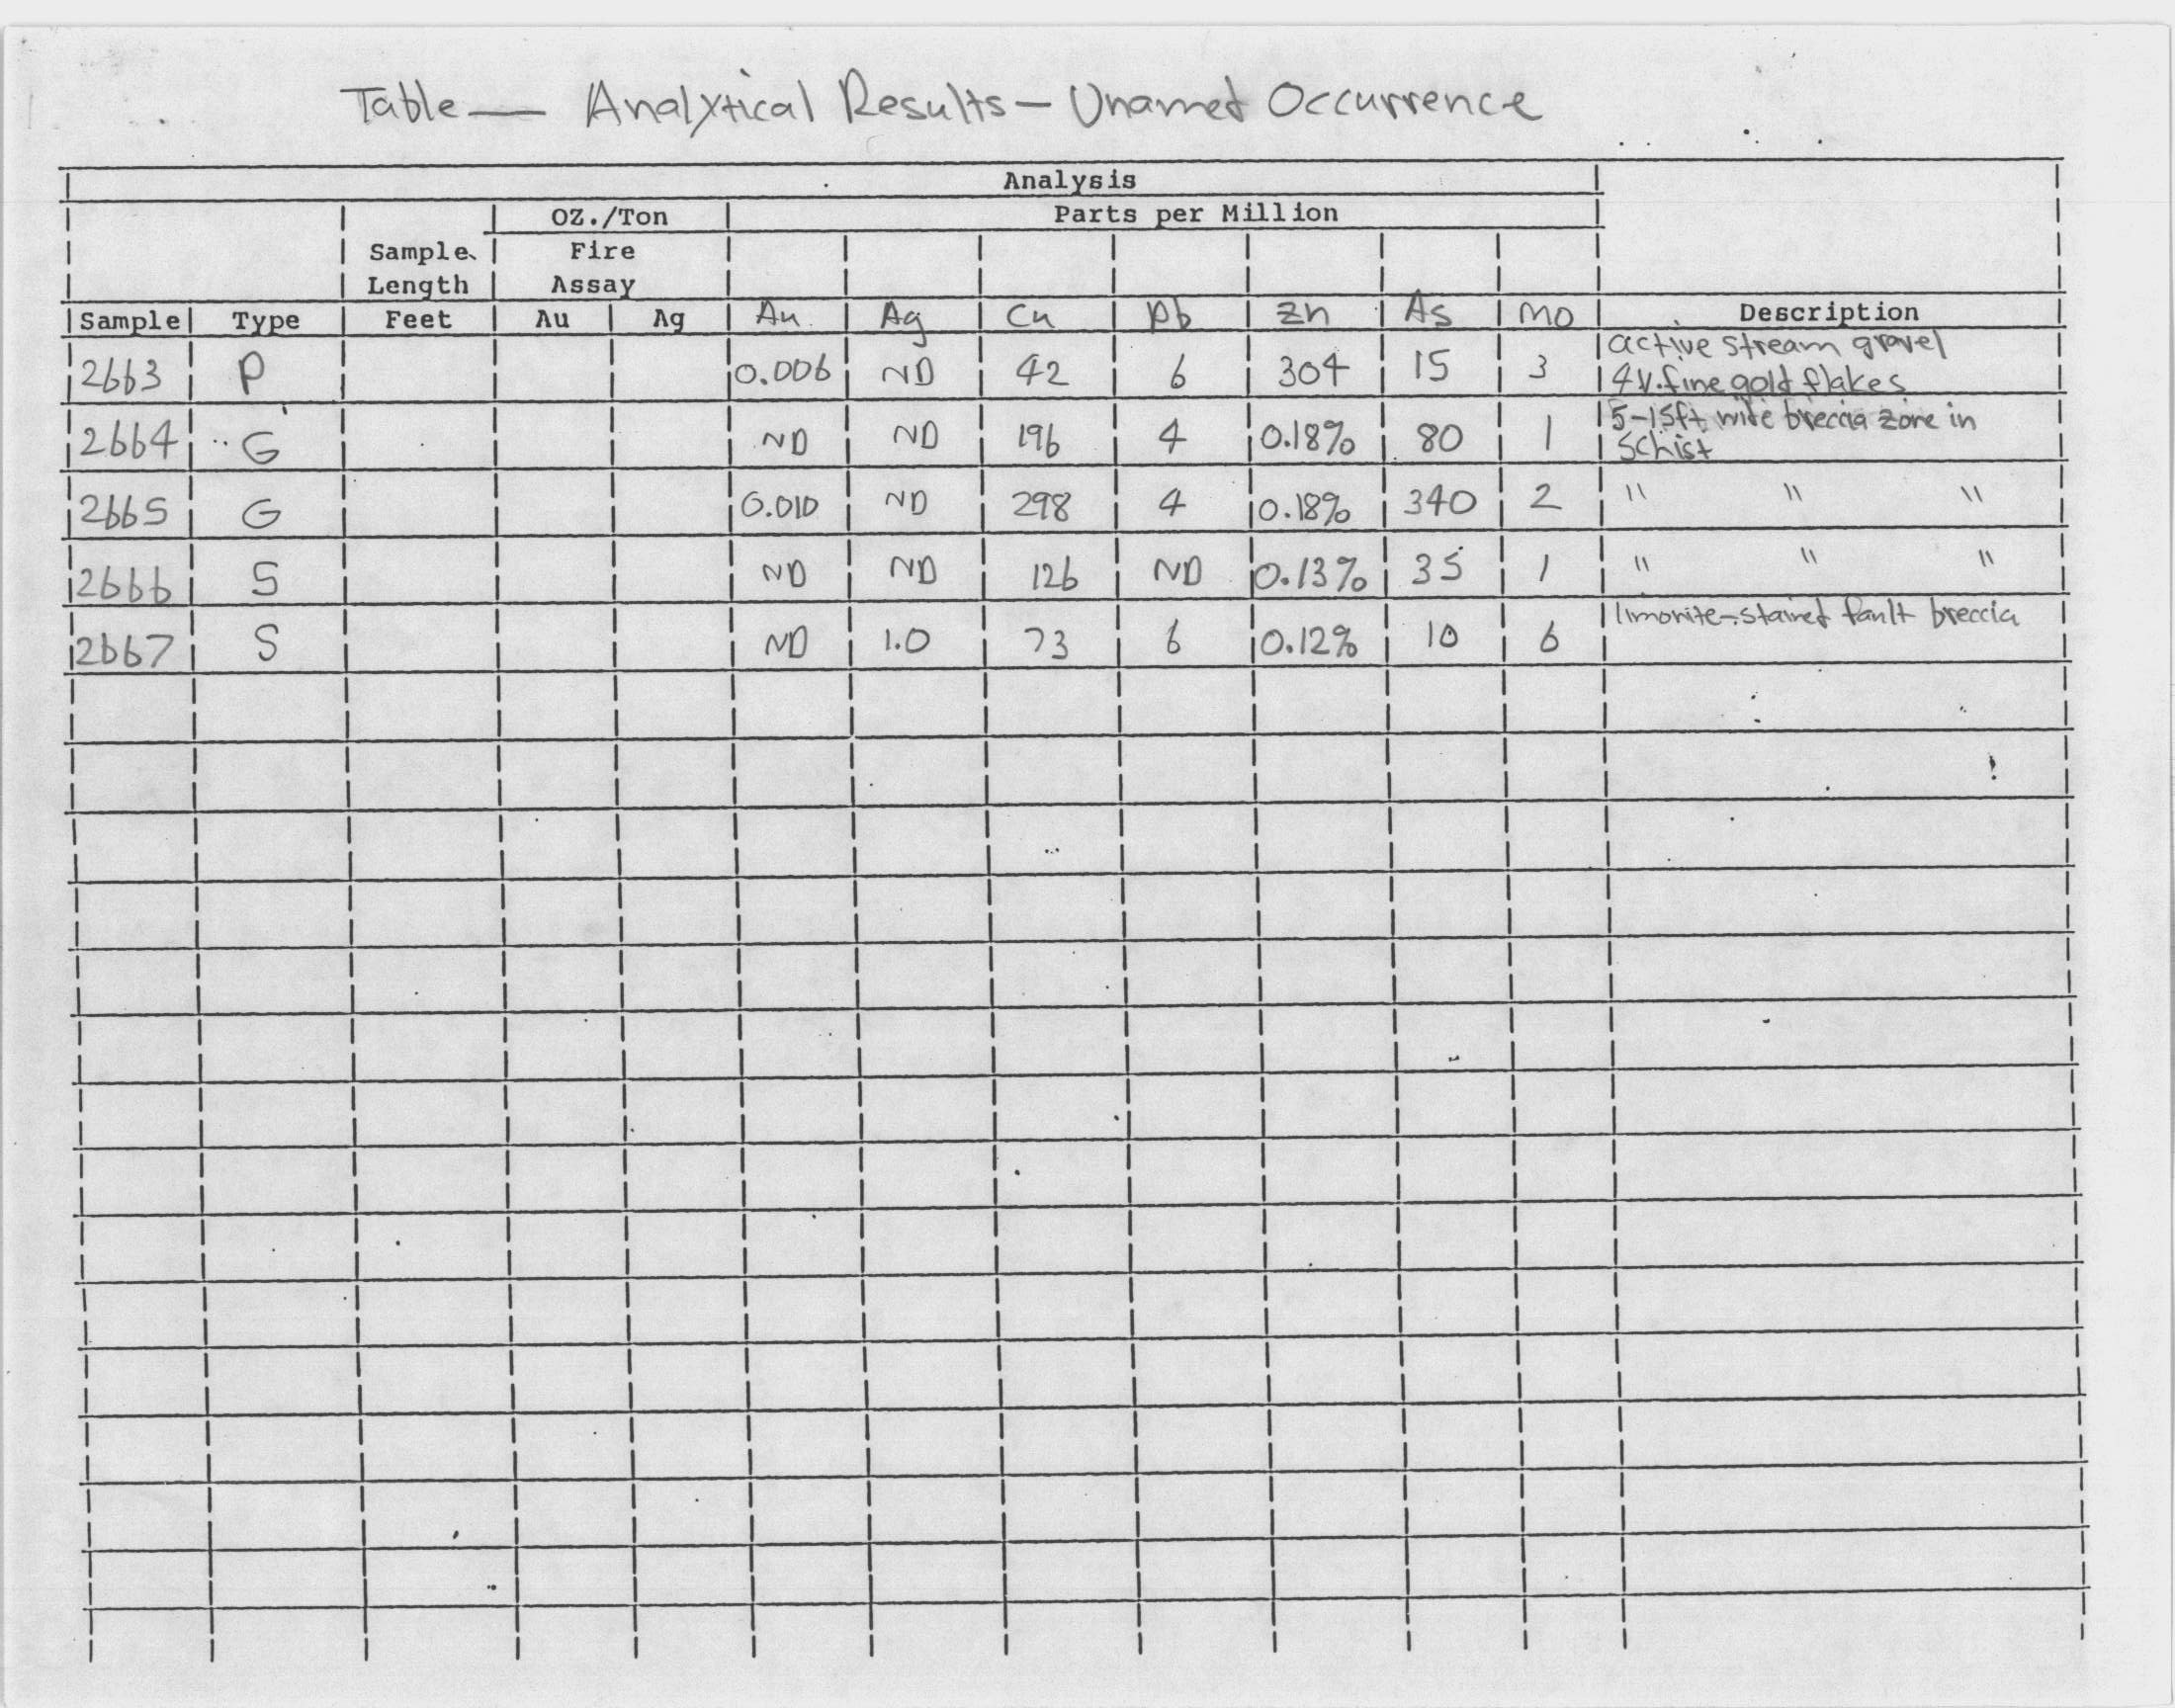 Table — Analytical Results - Unamed Occurrence
Analysis
OZ./Ton Parts per Million
Sample Fire
Length Assay
Sample Type Feet Au Ag Au Ag Cu Pb Zn As Mo Description
active stream gravel
2663 P 0.006 ND 42 6 304 15 3 4 v. fine gold flakes
5-15ft wide breccia zone in
2664 G ND ND 196 4 0.18% 80 1 Schist
2665 G 0.010 ND 298 4 0.18% 340 2 " " "
2666 S ND ND 126 ND 0.13% 35 1 " " "
limonite-stained fault breccia
2667 S ND 1.0 73 6 0.12% 10 6